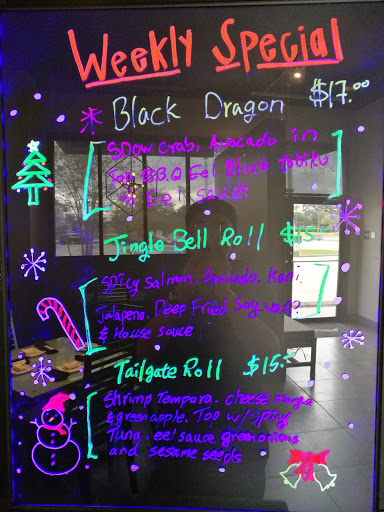 Weekly Special
Black Dragon $17.00
Snow crab, Avocado in
Top B.B.Q Eel Black tobiko
Eel sauce
Jingle Bell Roll $15.-
Spicy Salmon. Avocado. Kani.
Jalapeno. Deep Fried Soy wrap
& House sauce
Tailgate Roll $15.-
Shrimp Tempura. cheese mango
& green apple. Top w/ Spicy
Tuna. eel sauce green onions
and sesame seeds